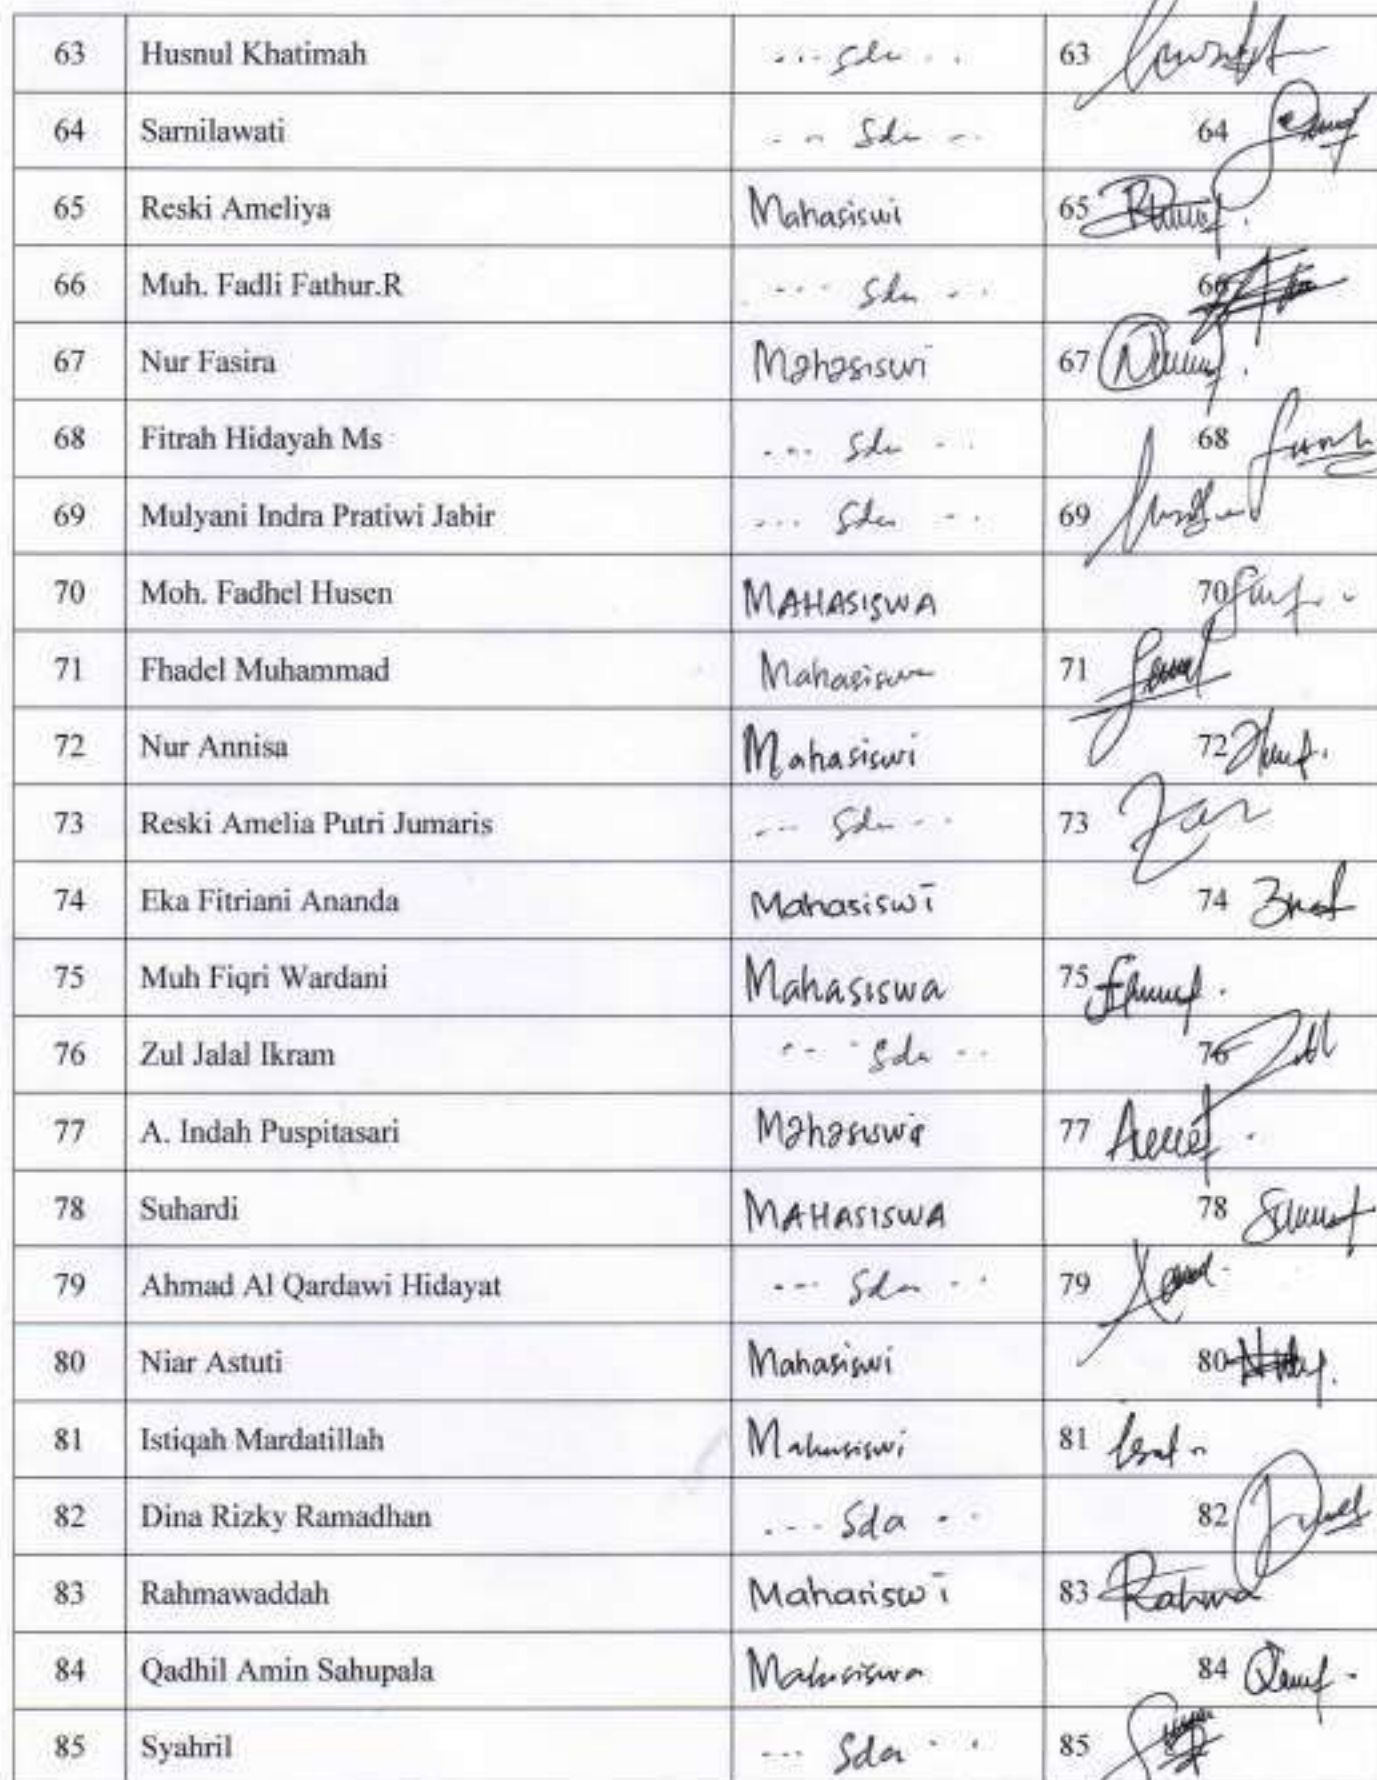 63 Husnul Khatimah ... sda ... 63
64 Sarnilawati ... Sda ... 64
65 Reski Ameliya Mahasiswi 65
66 Muh. Fadli Fathur.R ... Sda ... 66
67 Nur Fasira Mahasiswi 67
68 Fitrah Hidayah Ms ... Sda ... 68
69 Mulyani Indra Pratiwi Jabir ... Sda ... 69
70 Moh. Fadhel Husen MAHASISWA 70
71 Fhadel Muhammad Mahasiswa 71
72 Nur Annisa Mahasiswi 72
73 Reski Amelia Putri Jumaris ... Sda ... 73
74 Eka Fitriani Ananda Mahasiswi 74
75 Muh Fiqri Wardani Mahasiswa 75
76 Zul Jalal Ikram ... Sda ... 76
77 A. Indah Puspitasari Mahasiswi 77
78 Suhardi MAHASISWA 78
79 Ahmad Al Qardawi Hidayat ... Sda ... 79
80 Niar Astuti Mahasiswi 80
81 Istiqah Mardatillah Mahasiswi 81
82 Dina Rizky Ramadhan ... Sda ... 82
83 Rahmawaddah Mahasiswi 83 Rahma
84 Qadhil Amin Sahupala Mahasiswa 84
85 Syahril ... Sda ... 85